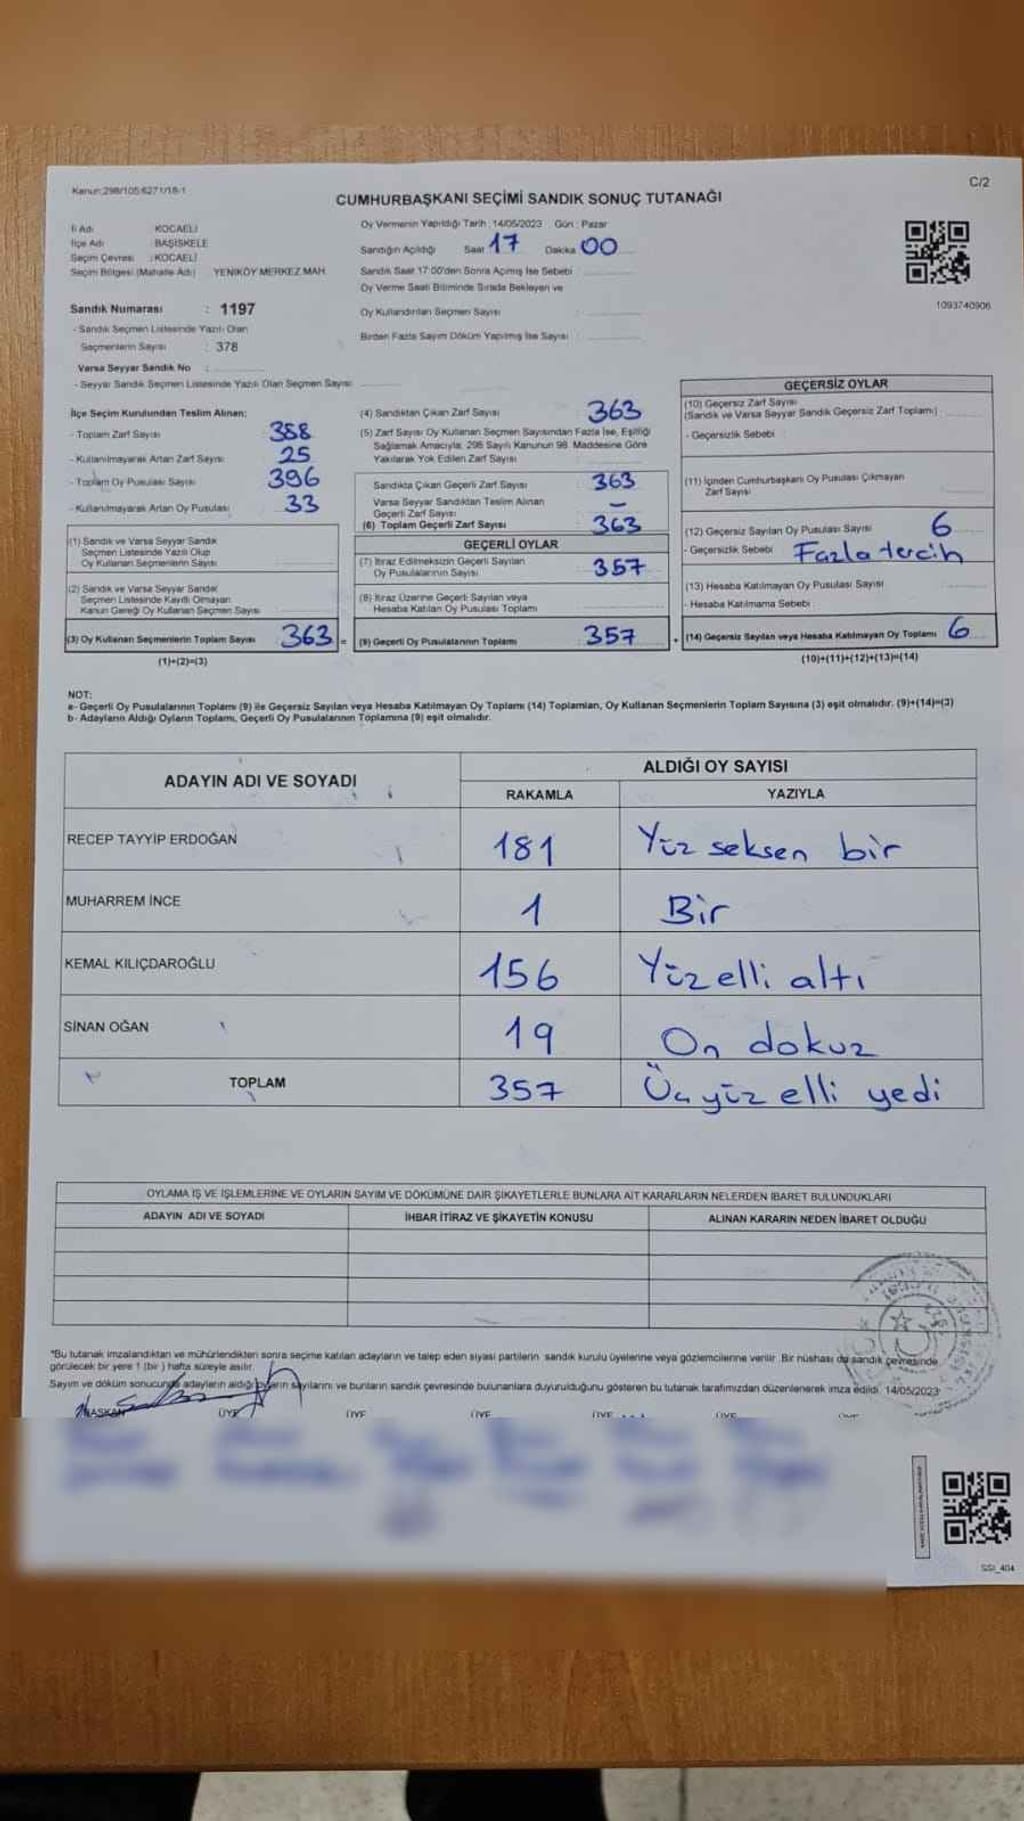 Kanun:298/105 6271/18-1
C/2
CUMHURBAŞKANI SEÇİMİ SANDIK SONUÇ TUTANAĞI
İl Adı KOCAELİ
İlçe Adı BAŞİSKELE
Seçim Çevresi : KOCAELİ
Seçim Bölgesi (Mahalle Adı) YENİKÖY MERKEZ MAH.
Sandık Numarası : 1197
- Sandık Seçmen Listesinde Yazılı Olan
Seçmenlerin Sayısı : 378
Varsa Seyyar Sandık No :
- Seyyar Sandık Seçmen Listesinde Yazılı Olan Seçmen Sayısı
Oy Vermenin Yapıldığı Tarih : 14/05/2023 Gün : Pazar
Sandığın Açıldığı Saat 17 Dakika 00
Sandık Saat 17:00'den Sonra Açılmış İse Sebebi
Oy Verme Saati Bitiminde Sırada Bekleyen ve
Oy Kullandırılan Seçmen Sayısı :
Birden Fazla Sayım Döküm Yapılmış İse Sayısı :
1093740906
İlçe Seçim Kurulundan Teslim Alınan:
- Toplam Zarf Sayısı 388
- Kullanılmayarak Artan Zarf Sayısı 25
- Toplam Oy Pusulası Sayısı 396
- Kullanılmayarak Artan Oy Pusulası 33
(1) Sandık ve Varsa Seyyar Sandık
Seçmen Listesinde Yazılı Olup
Oy Kullanan Seçmenlerin Sayısı
(2) Sandık ve Varsa Seyyar Sandık
Seçmen Listesinde Kayıtlı Olmayan
Kanun Gereği Oy Kullanan Seçmen Sayısı
(3) Oy Kullanan Seçmenlerin Toplam Sayısı 363 =
(1)+(2)=(3)
(4) Sandıktan Çıkan Zarf Sayısı 363
(5) Zarf Sayısı Oy Kullanan Seçmen Sayısından Fazla İse, Eşitliği
Sağlamak Amacıyla, 298 Sayılı Kanunun 98. Maddesine Göre
Yakılarak Yok Edilen Zarf Sayısı
Sandıkta Çıkan Geçerli Zarf Sayısı : 363
Varsa Seyyar Sandıktan Teslim Alınan
Geçerli Zarf Sayısı : -
(6) Toplam Geçerli Zarf Sayısı : 363
GEÇERLİ OYLAR
(7) İtiraz Edilmeksizin Geçerli Sayılan
Oy Pusulalarının Sayısı : 357
(8) İtiraz Üzerine Geçerli Sayılan veya
Hesaba Katılan Oy Pusulası Toplamı :
(9) Geçerli Oy Pusulalarının Toplamı : 357 +
GEÇERSİZ OYLAR
(10) Geçersiz Zarf Sayısı
(Sandık ve Varsa Seyyar Sandık Geçersiz Zarf Toplamı)
- Geçersizlik Sebebi :
(11) İçinden Cumhurbaşkanı Oy Pusulası Çıkmayan
Zarf Sayısı
(12) Geçersiz Sayılan Oy Pusulası Sayısı 6
- Geçersizlik Sebebi : Fazla tercih
(13) Hesaba Katılmayan Oy Pusulası Sayısı
- Hesaba Katılmama Sebebi :
(14) Geçersiz Sayılan veya Hesaba Katılmayan Oy Toplamı 6
(10)+(11)+(12)+(13)=(14)
NOT:
a- Geçerli Oy Pusulalarının Toplamı (9) ile Geçersiz Sayılan veya Hesaba Katılmayan Oy Toplamı (14) Toplamları, Oy Kullanan Seçmenlerin Toplam Sayısına (3) eşit olmalıdır. (9)+(14)=(3)
b- Adayların Aldığı Oyların Toplamı, Geçerli Oy Pusulalarının Toplamına (9) eşit olmalıdır.
ADAYIN ADI VE SOYADI
ALDIĞI OY SAYISI
RAKAMLA YAZIYLA
RECEP TAYYİP ERDOĞAN 181 Yüz seksen bir
MUHARREM İNCE 1 Bir
KEMAL KILIÇDAROĞLU 156 Yüz elli altı
SİNAN OĞAN 19 On dokuz
TOPLAM 357 Üç yüz elli yedi
OYLAMA İŞ VE İŞLEMLERİNE VE OYLARIN SAYIM VE DÖKÜMÜNE DAİR ŞİKAYETLERLE BUNLARA AİT KARARLARIN NELERDEN İBARET BULUNDUKLARI
ADAYIN ADI VE SOYADI İHBAR İTİRAZ VE ŞİKAYETİN KONUSU ALINAN KARARIN NEDEN İBARET OLDUĞU
*Bu tutanak imzalandıktan ve mühürlendikten sonra seçime katılan adayların ve talep eden siyasi partilerin sandık kurulu üyelerine veya gözlemcilerine verilir. Bir nüshası da sandık çevresinde
görülecek bir yere 1 (bir) hafta süreyle asılır.
Sayım ve döküm sonucunda adayların aldığı oyların sayılarını ve bunların sandık çevresinde bulunanlara duyurulduğunu gösteren bu tutanak tarafımızdan düzenlenerek imza edildi. 14/05/2023
BAŞKAN ÜYE ÜYE ÜYE ÜYE ÜYE
SSI_404